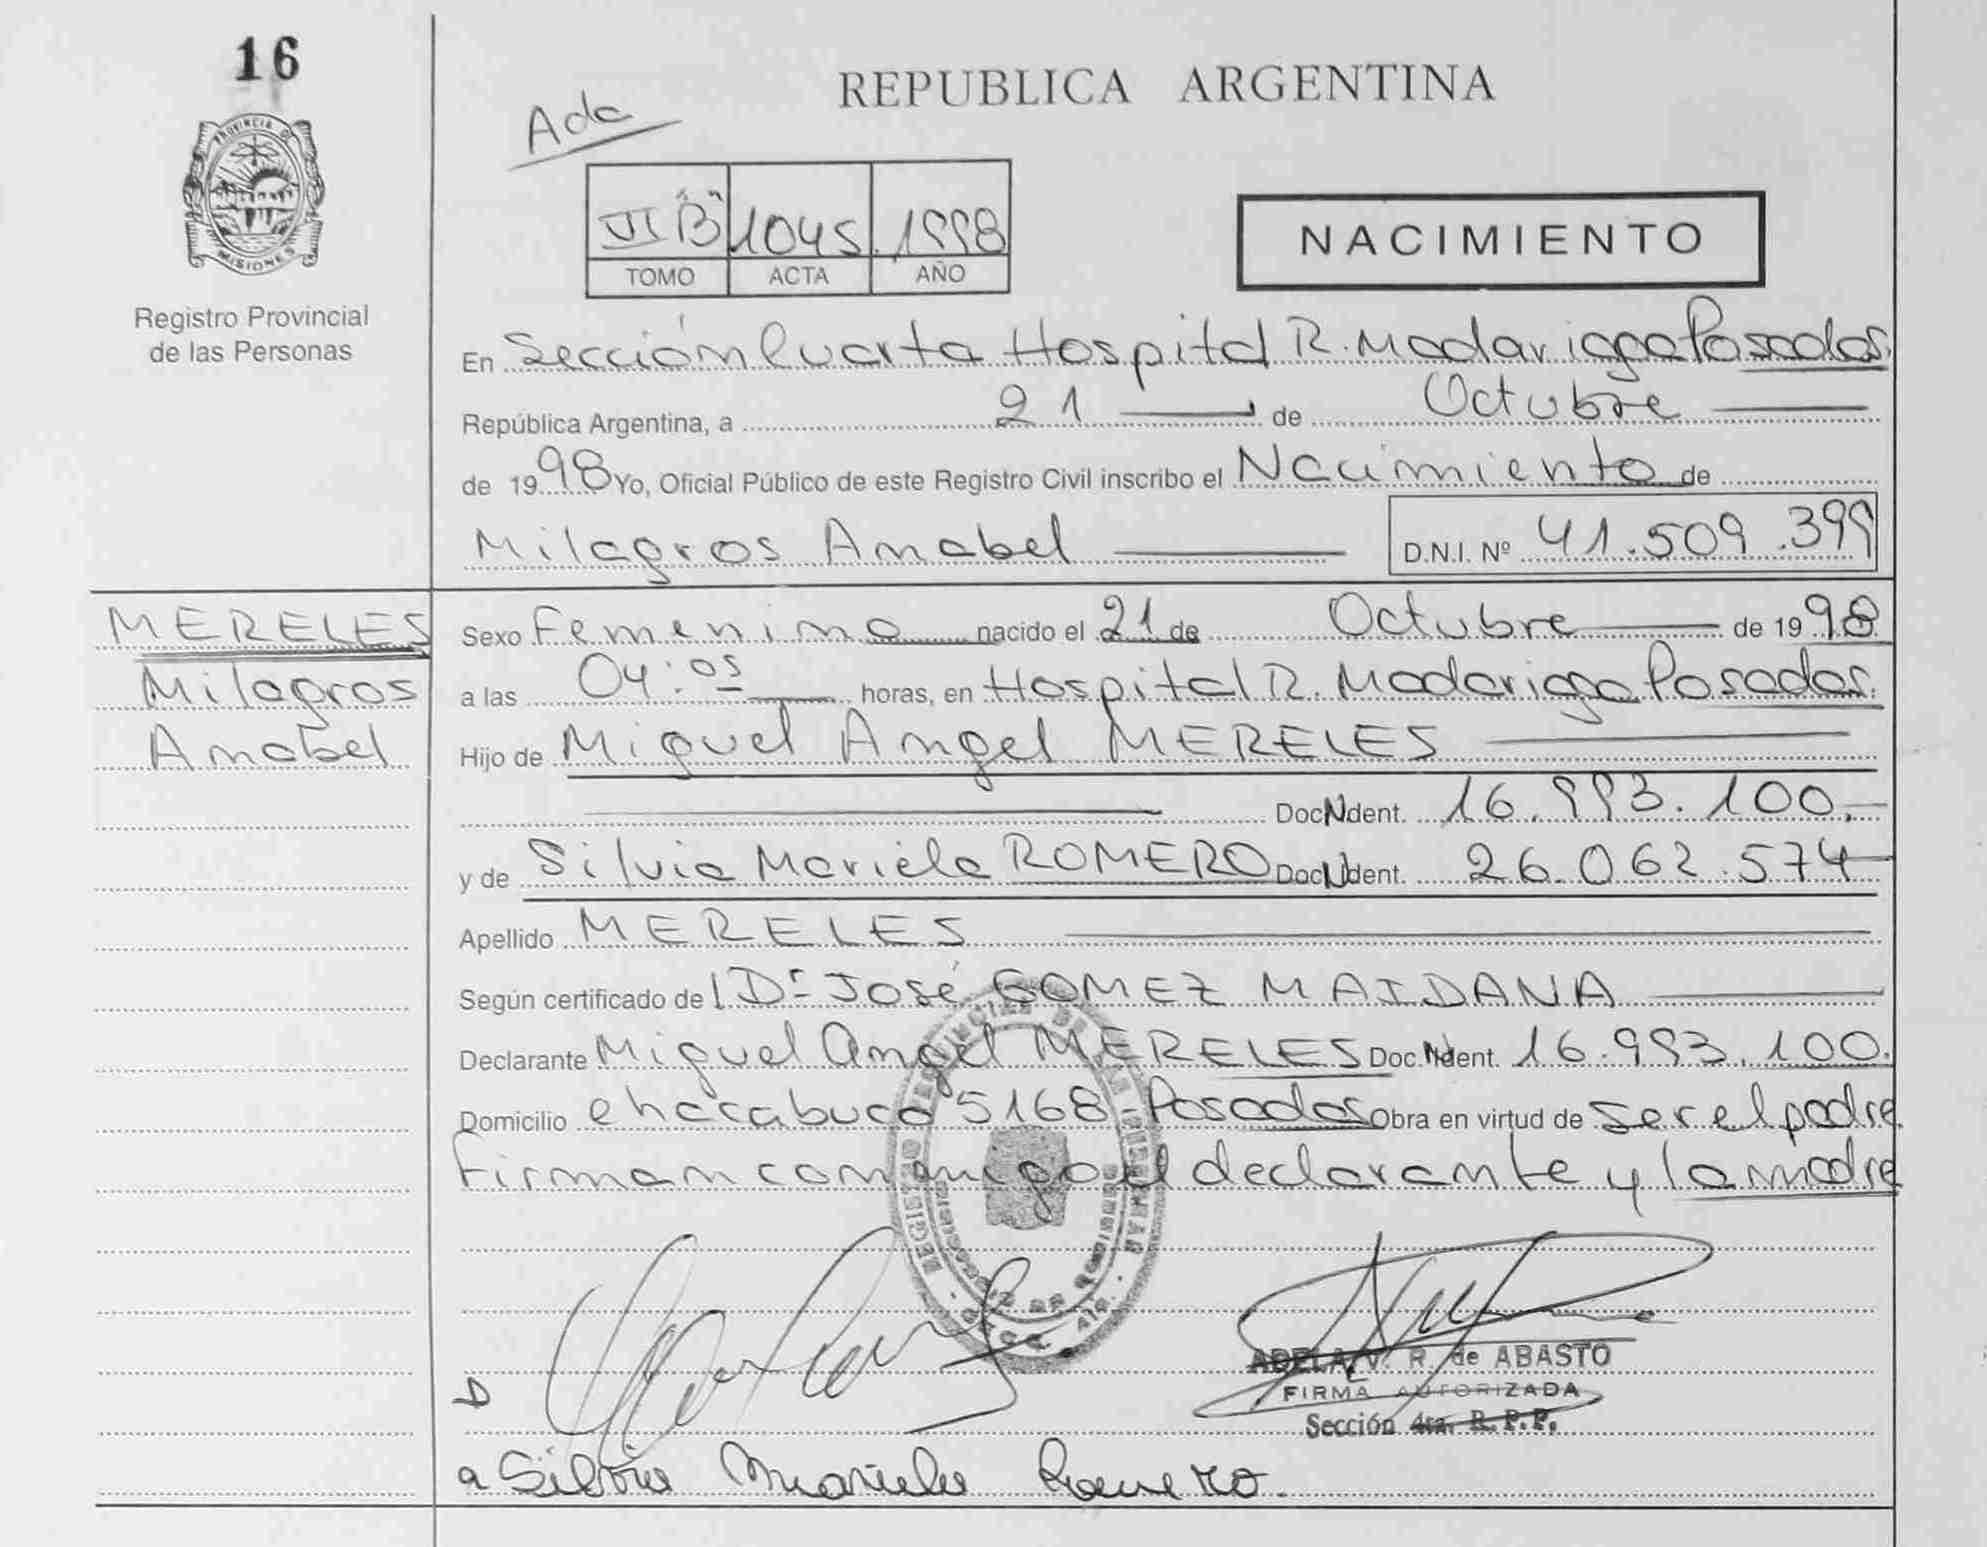 16
PROVINCIA DE
MISIONES
Registro Provincial
de las Personas
REPUBLICA ARGENTINA
Ada
VI "B" 1045 1998
TOMO ACTA AÑO
NACIMIENTO
En Sección Cuarta Hospital R. Madariaga Posadas
República Argentina, a 21 de Octubre
de 1998 Yo, Oficial Público de este Registro Civil inscribo el Nacimiento de
Milagros Anabel D.N.I. Nº 41.509.399
MERELES
Milagros
Anabel
Sexo Femenino nacido el 21 de Octubre de 1998
a las 04:05 horas, en Hospital R. Madariaga Posadas.
Hijo de Miguel Angel MERELES
Doc. Ident. 16.993.100.
y de Silvia Mariela ROMERO Doc. Ident. 26.062.574
Apellido MERELES
Según certificado del Dr JOSé GOMEZ MAIDANA
Declarante Miguel Angel MERELES Doc. Ident. 16.993.100.
Domicilio chacabuco 5168 Posadas Obra en virtud de ser el padre
Firman conmigo el declarante y la madre
ADELA V. R. de ABASTO
FIRMA AUTORIZADA
Sección 4ta. R.P.P.
a Silvia Mariela Romero.